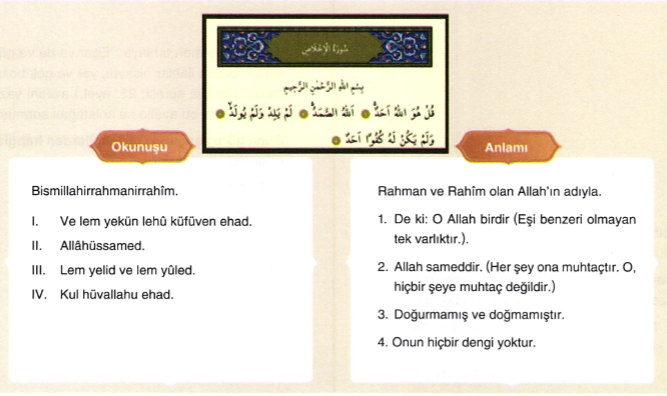 سُورَةُ الْاِخْلَاصِ
بِسْمِ اللهِ الرَّحْمٰنِ الرَّحِيمِ
قُلْ هُوَ اللهُ اَحَدٌۚ اَللهُ الصَّمَدُۚ لَمْ يَلِدْ وَلَمْ يُولَدْۙ
وَلَمْ يَكُنْ لَهُ كُفُوًا اَحَدٌ
Okunuşu
Bismillahirrahmanirrahîm.
I. Ve lem yekün lehû küfüven ehad.
II. Allâhüssamed.
III. Lem yelid ve lem yûled.
IV. Kul hüvallahu ehad.
Anlamı
Rahman ve Rahîm olan Allah'ın adıyla.
1. De ki: O Allah birdir (Eşi benzeri olmayan
tek varlıktır.).
2. Allah sameddir. (Her şey ona muhtaçtır. O,
hiçbir şeye muhtaç değildir.)
3. Doğurmamış ve doğmamıştır.
4. Onun hiçbir dengi yoktur.